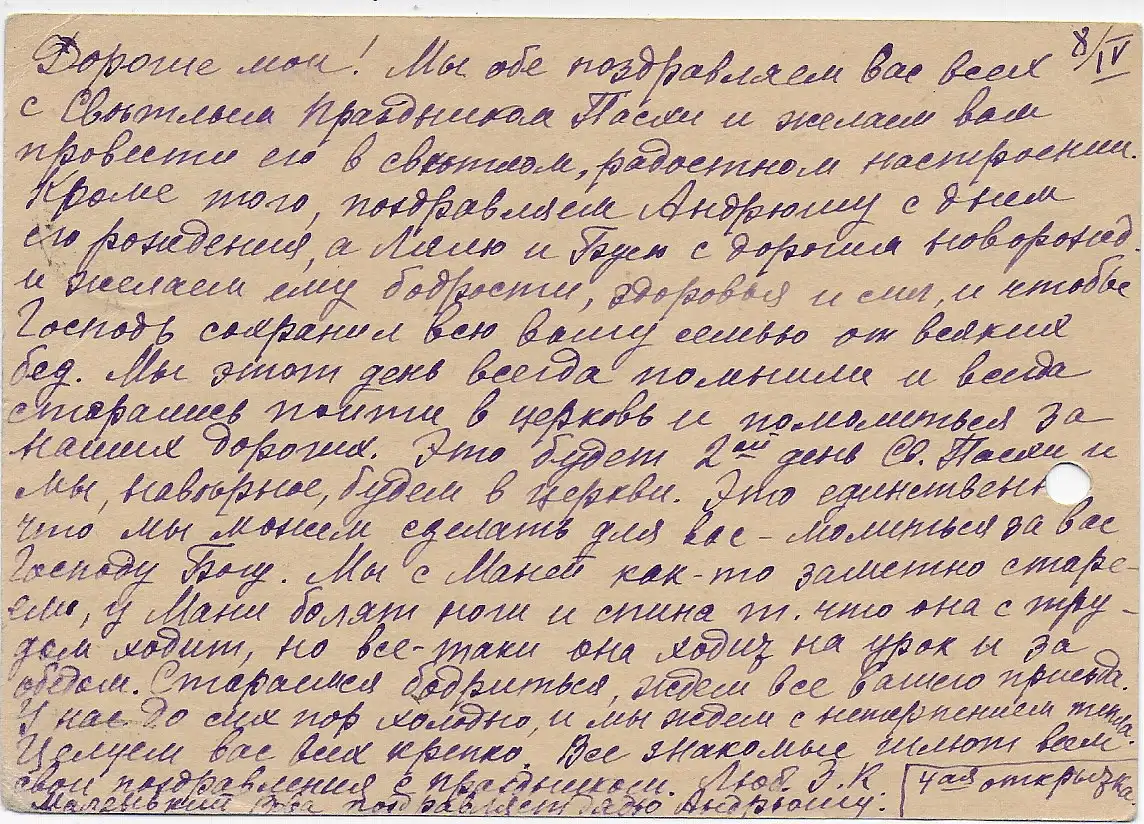 8/IV
Дорогие мои! Мы обе поздравляем вас всех
с Свѣтлым праздником Пасхи и желаем вам
провести его в свѣтлом, радостном настроении.
Кроме того, поздравляем Андрюшу с днем
его рождения, а Лилю и Бусю с дорогим новорожд.
и желаем ему бодрости, здоровья и сил, и чтобы
Господь сохранил всю вашу семью от всяких
бед. Мы этот день всегда помнили и всегда
старались пойти в церковь и помолиться за
наших дорогих. Это будет 2ой день Св. Пасхи и
мы, навѣрное, будем в церкви. Это единственн
что мы можем сделать для вас – молиться за вас
Господу Богу. Мы с Маней как-то заметно старе-
ем, у Мани болят ноги и спина т. что она с тру-
дом ходит, но все-таки она ходит на урок и за
обедом. Стараемся бодриться, ждем все вашего приезда.
У нас до сих пор холодно, и мы ждем с нетерпением тепла.
Целуем вас всех крепко. Все знакомые шлют вам
свои поздравления с праздником. Люб. З. К
4ая открытка.
Маленький поздравляет дядю Андрюшу.